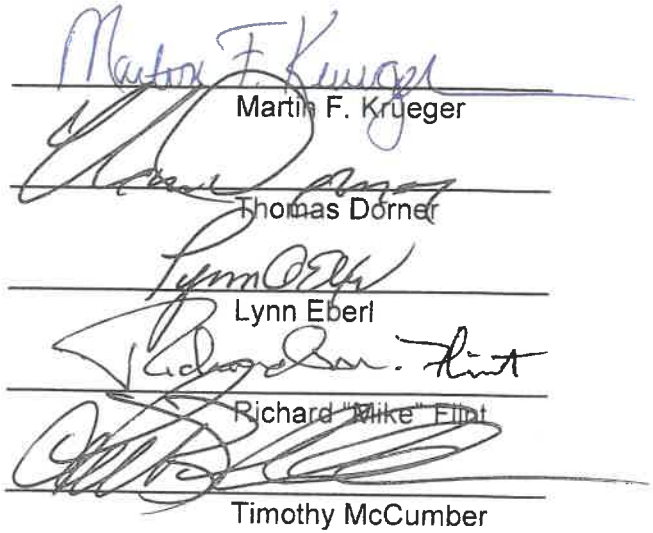 Martin F. Krueger
Martin F. Krueger
Thomas Dorner
Thomas Dorner
Lynn Eberl
Richard Flint
Richard "Mike" Flint
Timothy McCumber